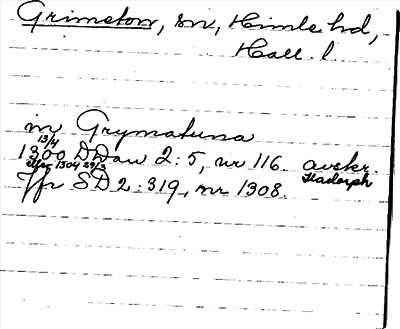 Grimeton, sn, Himle hd,
Hall. l.
in Grymatuna
13/4
1300 DDaw 2:5, nr 116. avskr.
eller 1304 29/3 Hadorph
Jfr SD 2:319, nr 1308.